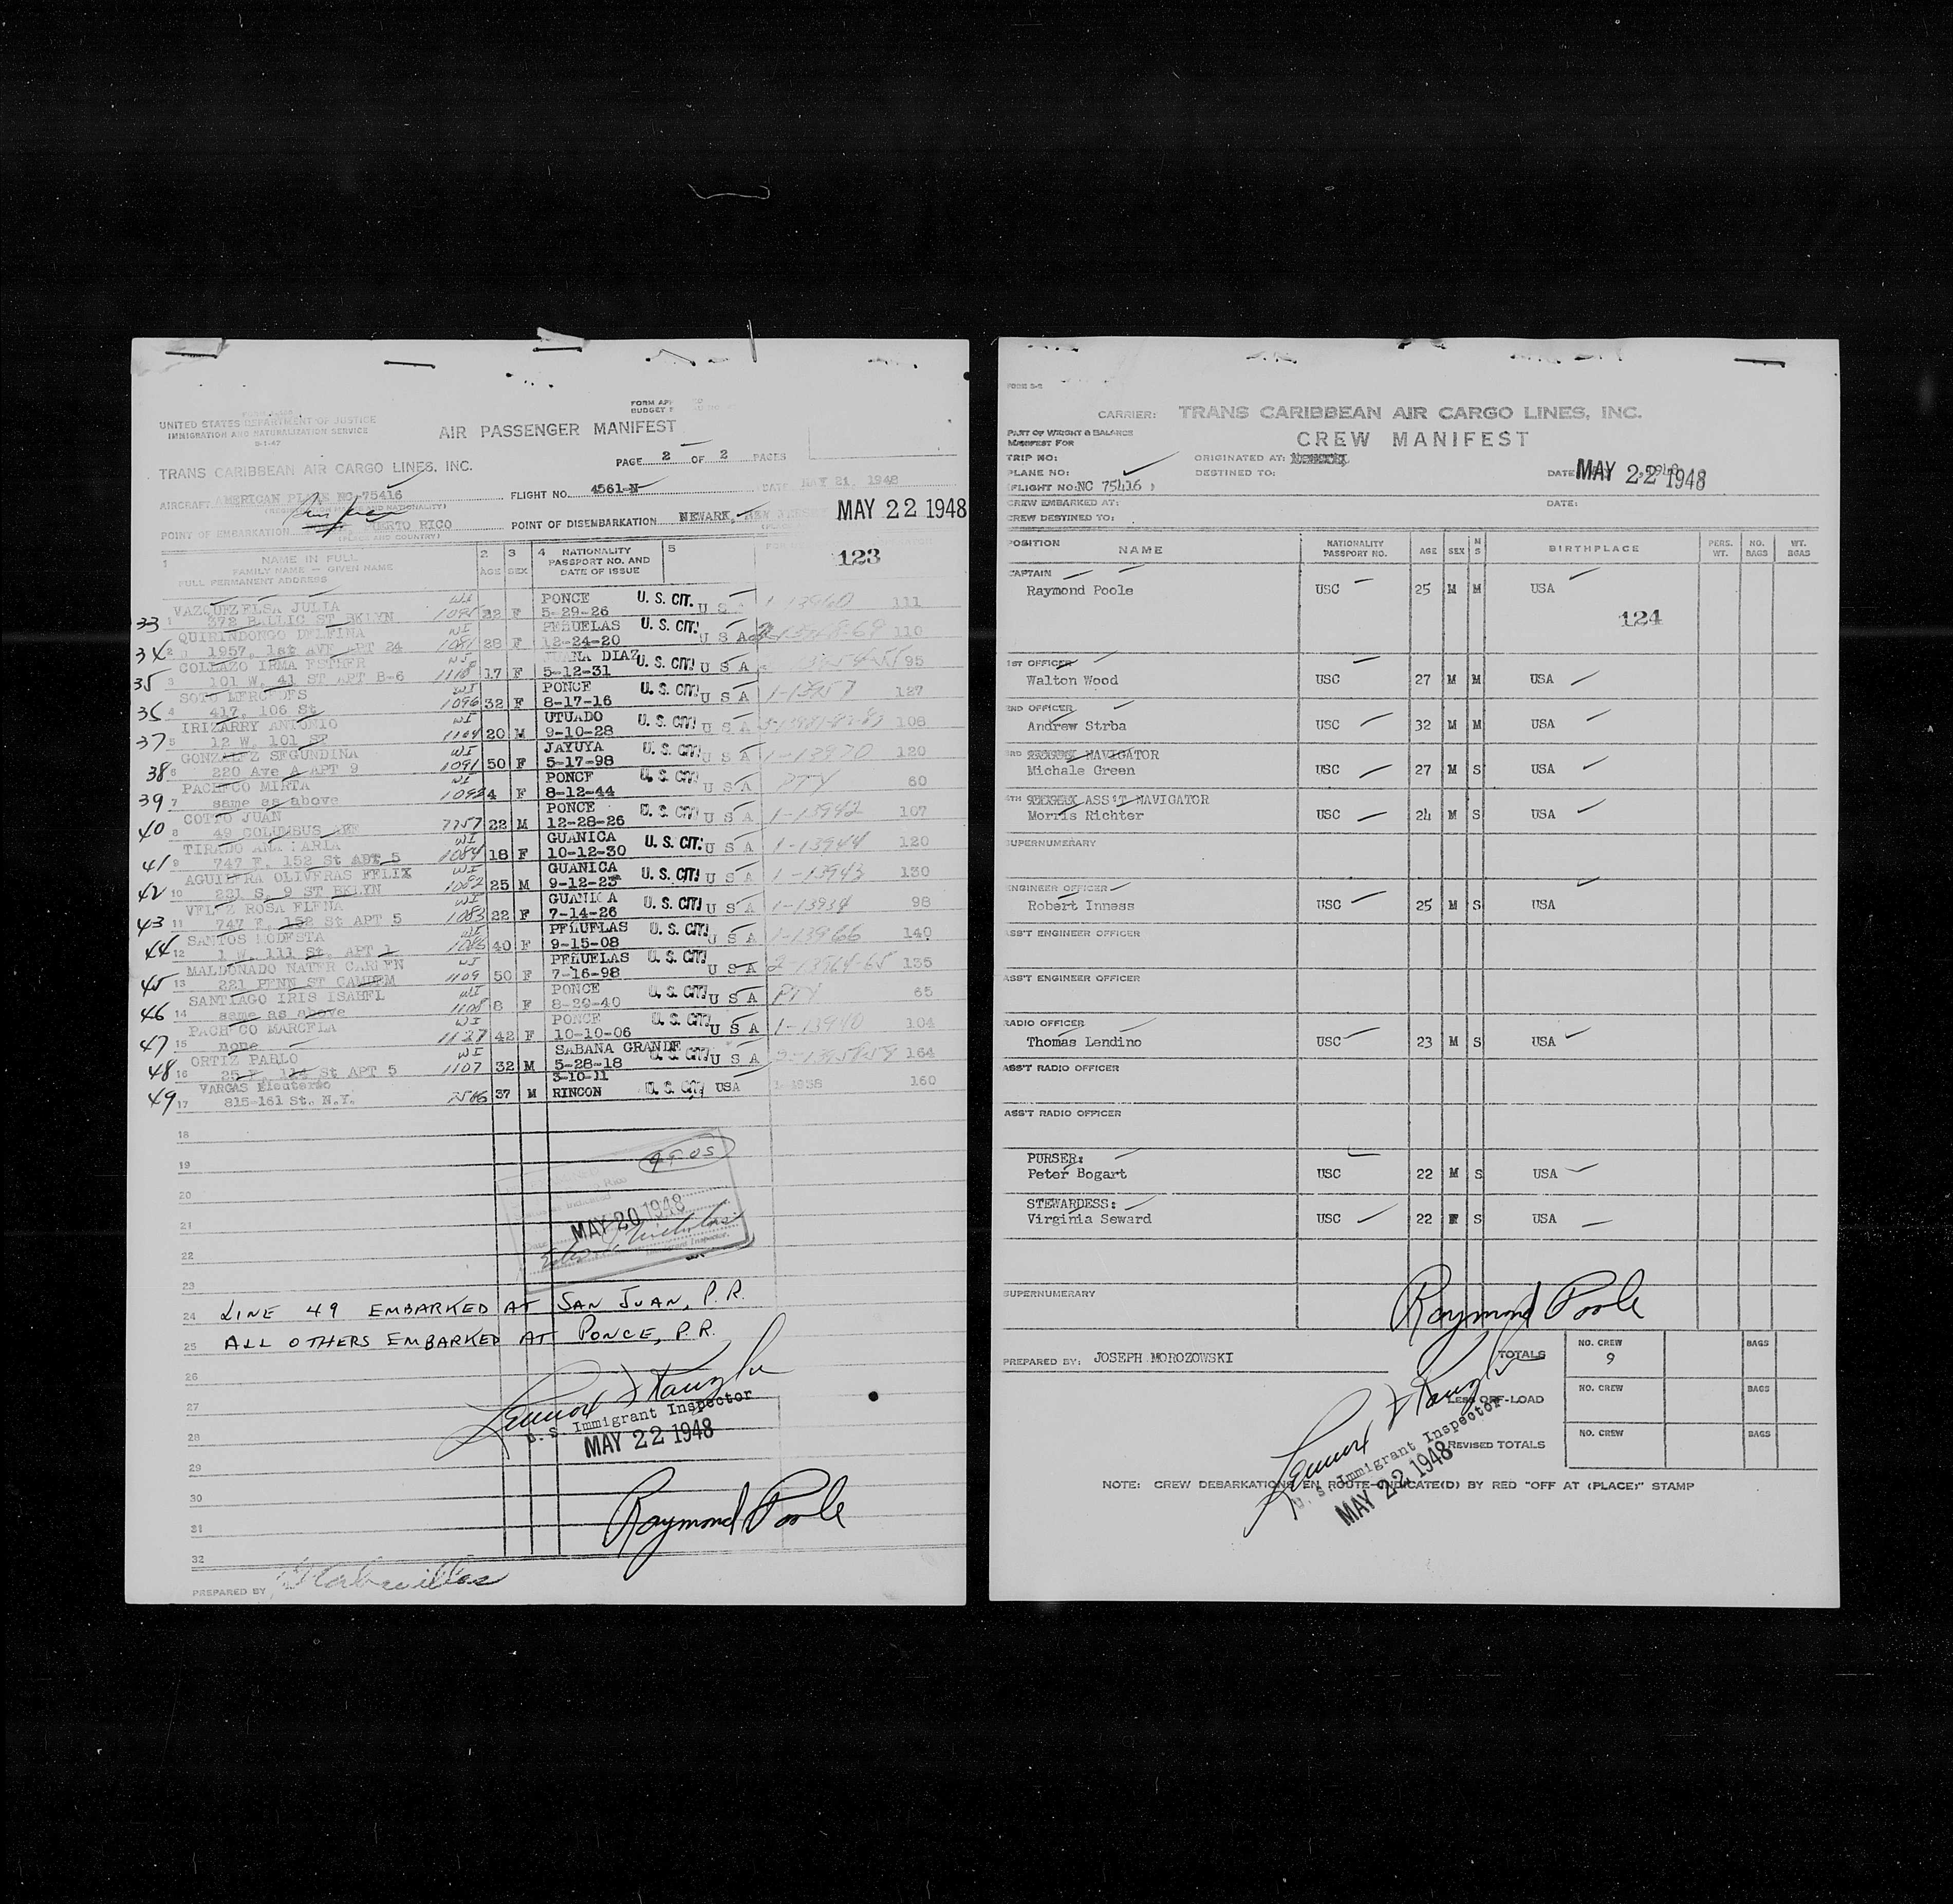 UNITED STATES DEPARTMENT OF JUSTICE
IMMIGRATION AND NATURALIZATION SERVICE
9-1-47
FORM APP
BUDGET
AIR PASSENGER MANIFEST
TRANS CARIBBEAN AIR CARGO LINES, INC.
PAGE 2 OF 2 PAGES
AIRCRAFT AMERICAN PLANE NC-75416 FLIGHT NO. 4561-N DATE MAY 21, 1948
(REGISTRATION MARKS AND NATIONALITY)
POINT OF EMBARKATION PUERTO RICO POINT OF DISEMBARKATION NEWARK, NEW MAY 22 1948
(PLACE AND COUNTRY)
1 NAME IN FULL 2 3 4 NATIONALITY 5 123
FAMILY NAME — GIVEN NAME AGE SEX PASSPORT NO. AND
FULL PERMANENT ADDRESS DATE OF ISSUE
VAZQUEZ ELSA JULIA WI PONCE U. S. CIT.
33 1 372 ST BKLYN 1095 22 F 5-29-26 U S A 1-13960 111
QUIRINDONGO DELFINA WI PEÑUELAS U. S. CIT.
34 2 1957, 1st AVE APT 24 1081 28 F 12-24-20 U S A 110
COLLAZO IRMA ESTHER WI JUANA DIAZ U. S. CIT.
35 3 101 W. 41 ST APT B-6 1118 17 F 5-12-31 U S A 95
SOTO MERCEDES WI PONCE U. S. CIT.
36 4 417, 106 St 1096 32 F 8-17-16 U S A 1-13957 127
IRIZARRY ANTONIO WI UTUADO U. S. CIT.
37 5 12 W. 101 ST 1104 20 M 9-10-28 U S A 108
GONZALEZ SEGUNDINA WI JAYUYA U. S. CIT.
38 6 220 Ave A APT 9 1091 50 F 5-17-98 U S A 1-13970 120
PACHECO MIRTA WI PONCE U. S. CIT.
39 7 same as above 1092 4 F 8-12-44 U S A PTY 60
COTTO JUAN PONCE U. S. CIT.
40 8 49 COLUMBUS AVE 7757 22 M 12-28-26 U S A 1-13942 167
TIRADO ANA MARIA WI GUANICA U. S. CIT.
41 9 747 E. 152 St APT 5 1084 18 F 10-12-30 U S A 1-13944 120
AGUILERA OLIVERAS FELIX WI GUANICA U. S. CIT.
42 10 221 S. 9 ST BKLYN 1082 25 M 9-12-23 U S A 1-13943 130
VELEZ ROSA ELENA WI GUANICA U. S. CIT.
43 11 747 E. 152 St APT 5 1083 22 F 7-14-26 U S A 1-13934 98
SANTOS MODESTA WI PEÑUELAS U. S. CIT.
44 12 1 W. 111 St. APT 1 1086 40 F 9-15-08 U S A 1-13966 140
MALDONADO NATER CARMEN WI PEÑUELAS U. S. CIT.
45 13 221 PENN ST CAMDEM 1109 50 F 7-16-98 U S A 2-13964-65 135
SANTIAGO IRIS ISABEL WI PONCE U. S. CIT.
46 14 same as above 1108 8 F 8-29-40 U S A PTY 65
PACHECO MARCELA WI PONCE U. S. CIT.
47 15 none 1127 42 F 10-10-06 U S A 1-13940 104
ORTIZ PABLO WI SABANA GRANDE U. S. CIT.
48 16 25 E. 114 St APT 5 1107 32 M 5-28-18 U S A 164
VARGAS Eleuterio 3-10-11
49 17 815-161 St. N.Y. 37 M RINCON U. S. CIT. USA 1-1938 160
18
19
20
21 MAY 20 1948
22 Immigrant Inspector.
23
24 LINE 49 EMBARKED AT SAN JUAN, P.R.
25 ALL OTHERS EMBARKED AT PONCE, P.R.
26
27
28 U. S. Immigrant Inspector
MAY 22 1948
29
30 Raymond Poole
31
32
PREPARED BY
CARRIER: TRANS CARIBBEAN AIR CARGO LINES, INC.
PART OF WEIGHT & BALANCE
MANIFEST FOR CREW MANIFEST
TRIP NO: ORIGINATED AT:
PLANE NO: DESTINED TO: DATE MAY 22 1948
(FLIGHT NO: NC 75416 )
CREW EMBARKED AT: DATE:
CREW DESTINED TO:
POSITION NAME NATIONALITY PASSPORT NO. AGE SEX M S BIRTHPLACE PERS. WT. NO. BAGS WT. BGAS
CAPTAIN
Raymond Poole USC 25 M M USA
124
1ST OFFICER
Walton Wood USC 27 M M USA
2ND OFFICER
Andrew Strba USC 32 M M USA
3RD NAVIGATOR
Michale Green USC 27 M S USA
4TH ASS'T NAVIGATOR
Morris Richter USC 24 M S USA
SUPERNUMERARY
ENGINEER OFFICER
Robert Inness USC 25 M S USA
ASS'T ENGINEER OFFICER
ASS'T ENGINEER OFFICER
RADIO OFFICER
Thomas Lendino USC 23 M S USA
ASS'T RADIO OFFICER
ASS'T RADIO OFFICER
PURSER:
Peter Bogart USC 22 M S USA
STEWARDESS:
Virginia Seward USC 22 F S USA
SUPERNUMERARY
Raymond Poole
PREPARED BY: JOSEPH MOROZOWSKI TOTALS NO. CREW 9 BAGS
LESS OFF-LOAD NO. CREW BAGS
REVISED TOTALS NO. CREW BAGS
U. S. Immigrant Inspector
MAY 22 1948
NOTE: CREW DEBARKATIONS EN ROUTE INDICATE(D) BY RED "OFF AT (PLACE)" STAMP